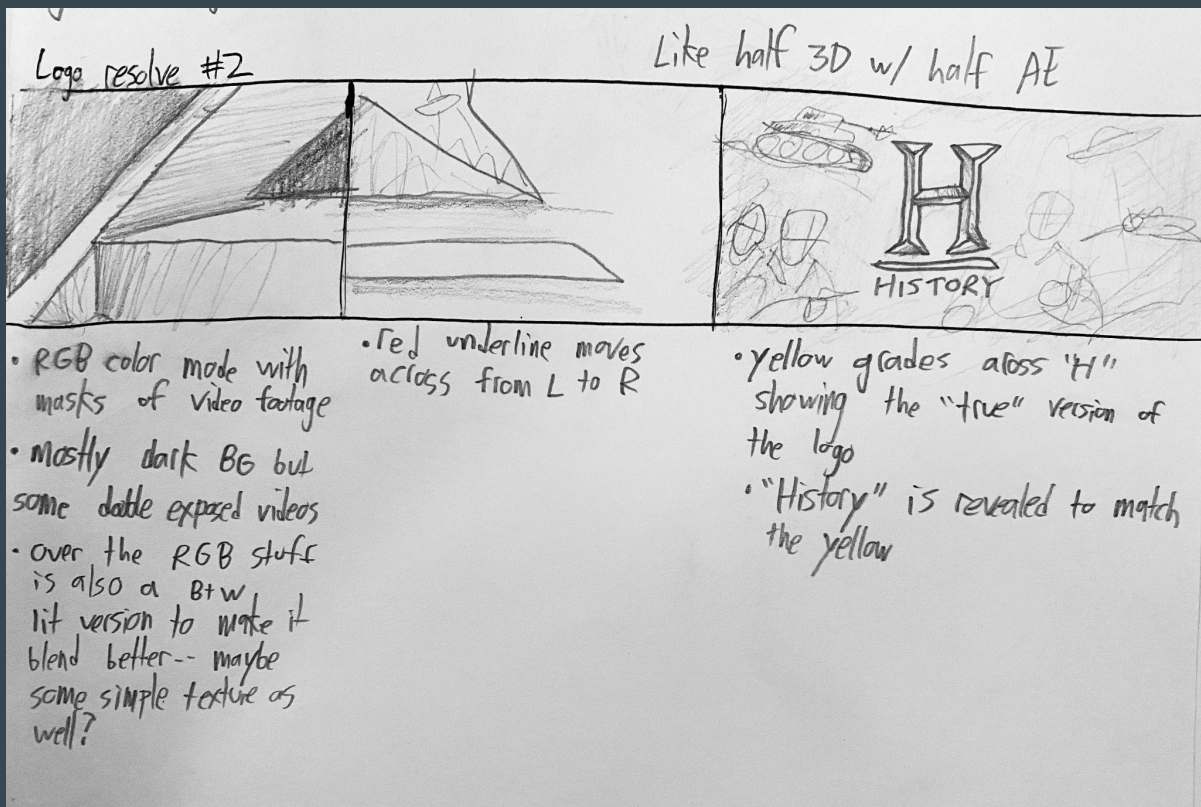 Logo resolve #2
Like half 3D w/ half AE
H
HISTORY
• RGB color mode with
masks of video footage
• mostly dark BG but
some double exposed videos
• over the RGB stuff
is also a B+W
lit version to make it
blend better-- maybe
some simple texture as
well?
• red underline moves
across from L to R
• yellow grades aross "H"
showing the "true" version of
the logo
• "History" is revealed to match
the yellow